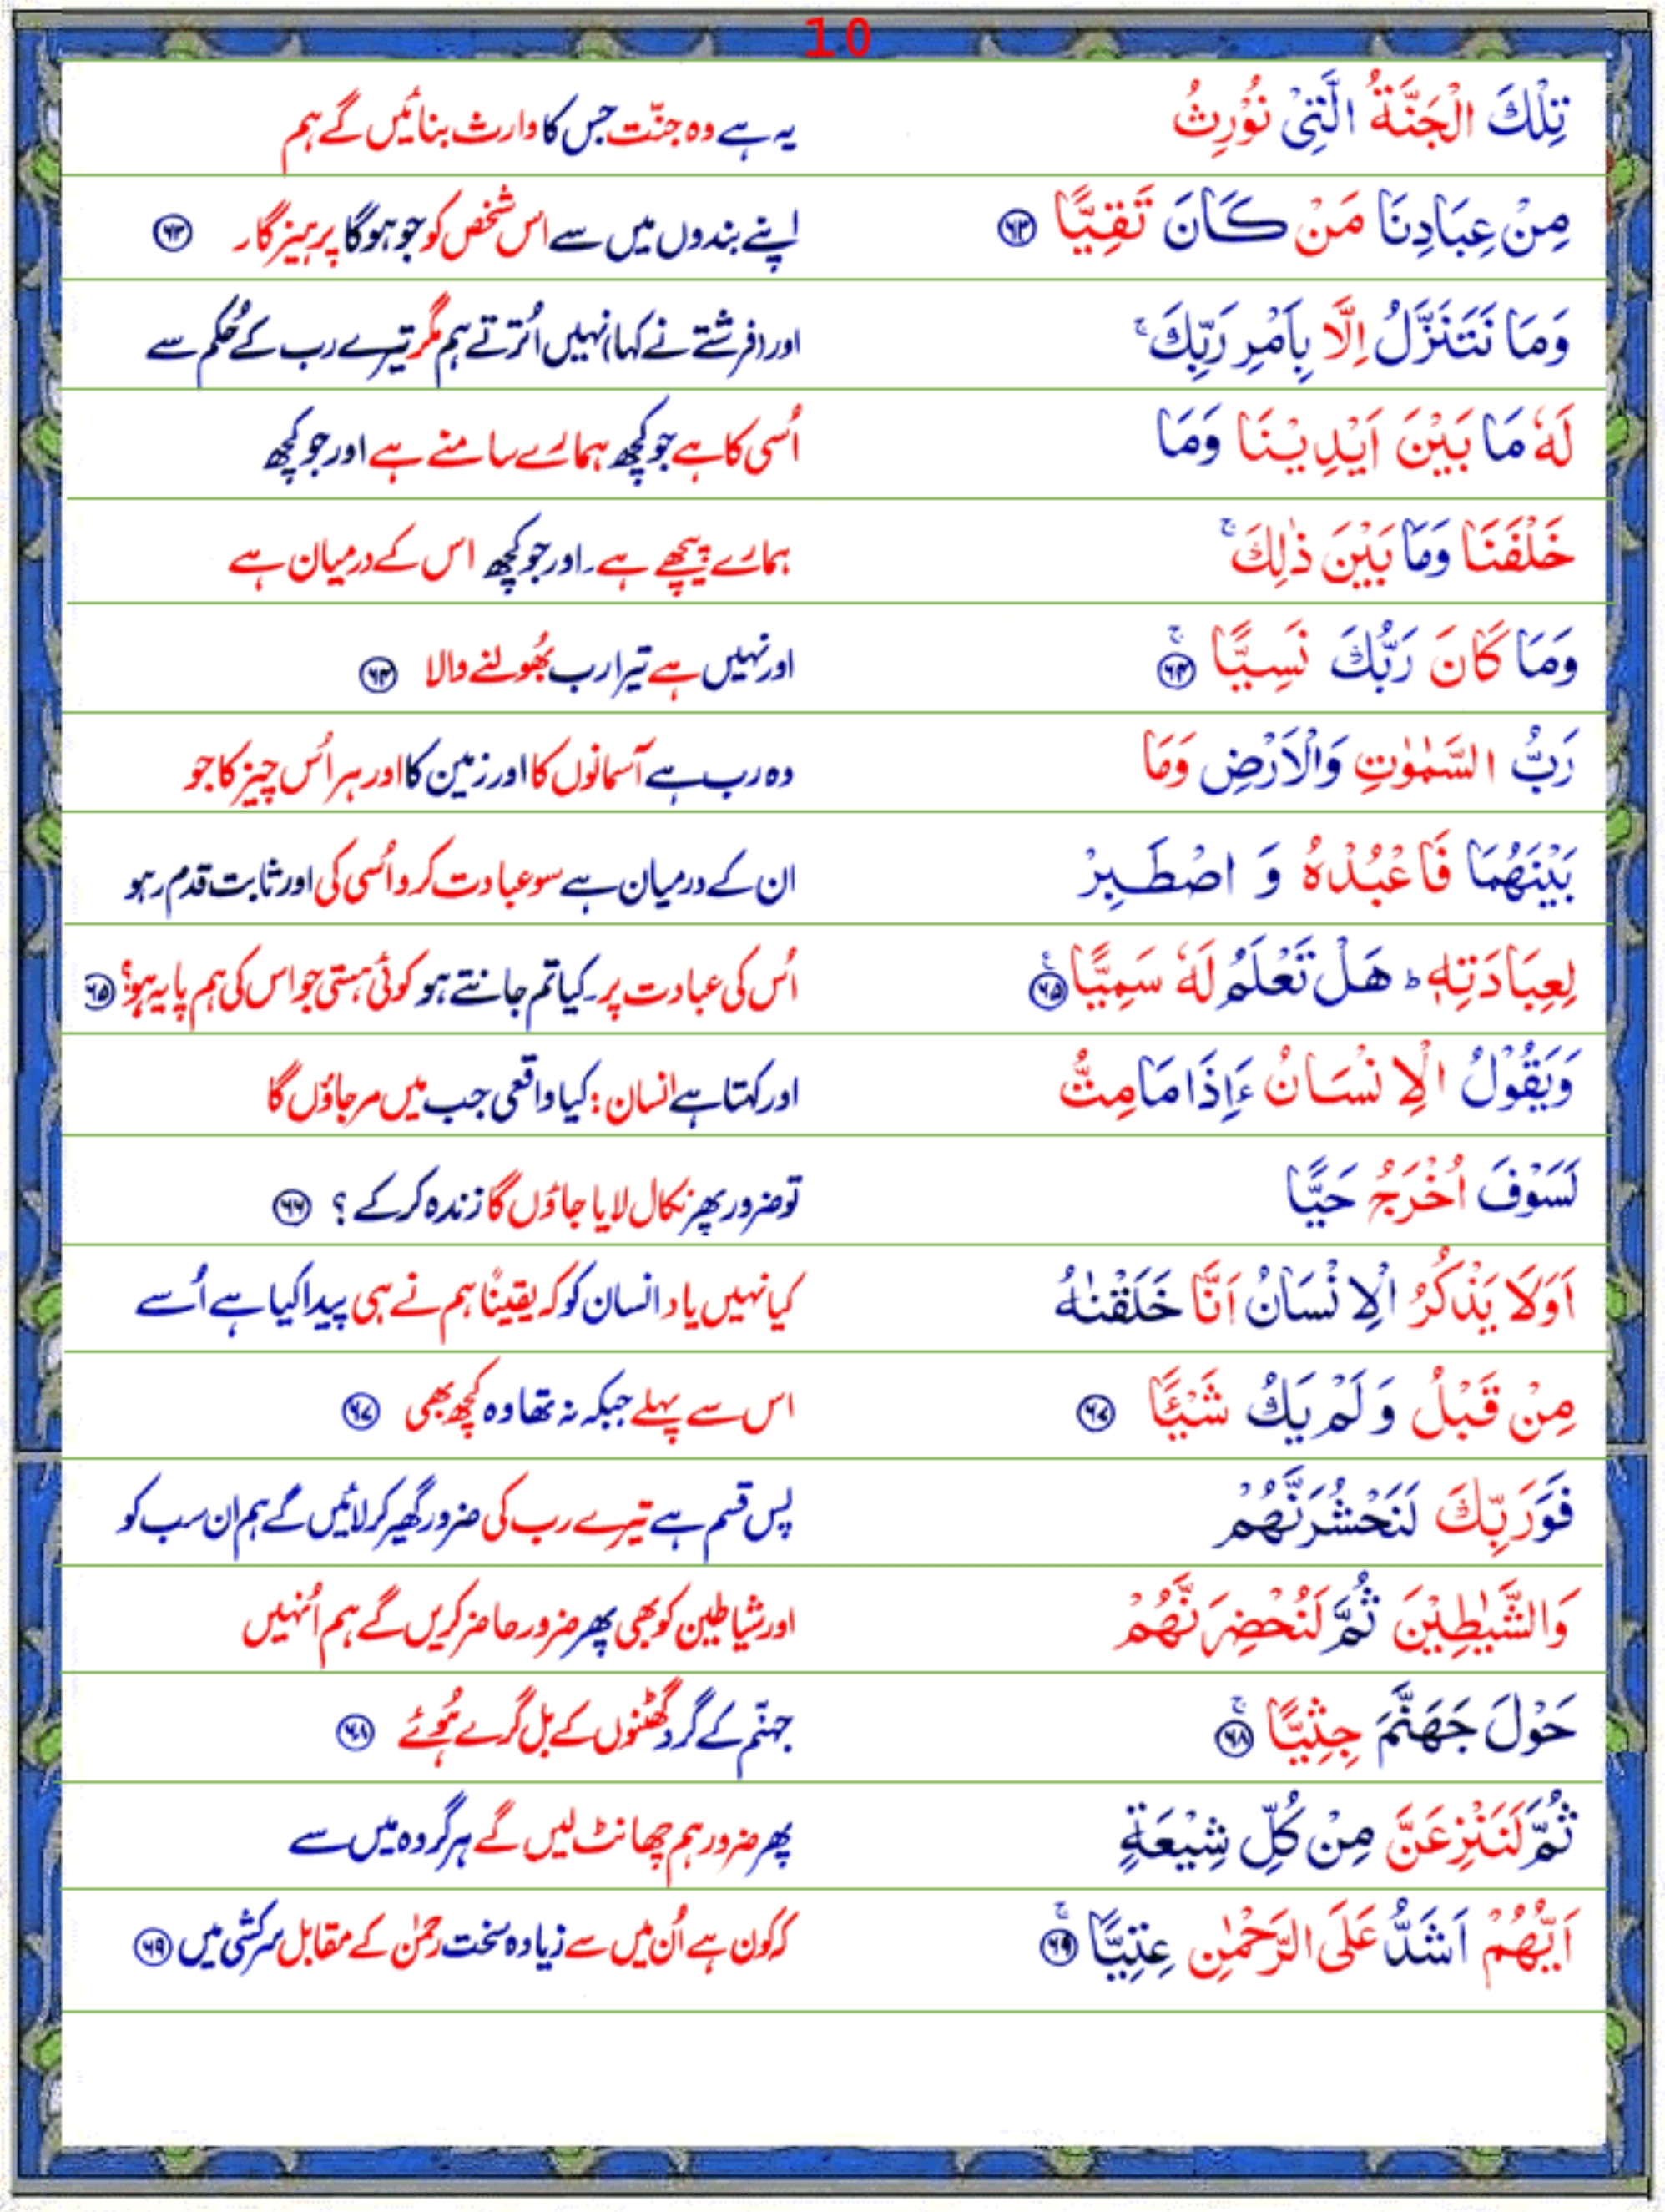 10
تِلْكَ الْجَنَّةُ الَّتِیْ نُوْرِثُ
یہ ہے وہ جنّت جس کا وارث بنائیں گے ہم
مِنْ عِبَادِنَا مَنْ كَانَ تَقِیًّا ﴿۶۳﴾
اپنے بندوں میں سے اس شخص کو جو ہوگا پرہیزگار ﴿۶۳﴾
وَمَا نَتَنَزَّلُ اِلَّا بِاَمْرِ رَبِّكَ ۚ
اور (فرشتے نے کہا) نہیں اُترتے ہم مگر تیرے رب کے حُکم سے
لَهٗ مَا بَیْنَ اَیْدِیْنَا وَمَا
اُسی کا ہے جو کچھ ہمارے سامنے ہے اور جو کچھ
خَلْفَنَا وَمَا بَیْنَ ذٰلِكَ ۚ
ہمارے پیچھے ہے۔ اور جو کچھ اس کے درمیان ہے
وَمَا كَانَ رَبُّكَ نَسِیًّا ۚ ﴿۶۴﴾
اور نہیں ہے تیرا رب بھُولنے والا ﴿۶۴﴾
رَبُّ السَّمٰوٰتِ وَالْاَرْضِ وَمَا
وہ رب ہے آسمانوں کا اور زمین کا اور ہر اُس چیز کا جو
بَیْنَهُمَا فَاعْبُدْهُ وَ اصْطَبِرْ
ان کے درمیان ہے سو عبادت کرو اُسی کی اور ثابت قدم رہو
لِعِبَادَتِهٖ ؕ هَلْ تَعْلَمُ لَهٗ سَمِیًّا ۠ ﴿۶۵﴾
اُس کی عبادت پر۔ کیا تم جانتے ہو کوئی ہستی جو اس کی ہم پایہ ہو؟ ﴿۶۵﴾
وَیَقُوْلُ الْاِنْسَانُ ءَاِذَا مَا مِتُّ
اور کہتا ہے انسان: کیا واقعی جب میں مر جاؤں گا
لَسَوْفَ اُخْرَجُ حَیًّا
تو ضرور پھر نکال لایا جاؤں گا زندہ کر کے؟ ﴿۶۶﴾
اَوَلَا یَذْكُرُ الْاِنْسَانُ اَنَّا خَلَقْنٰهُ
کیا نہیں یاد انسان کو کہ یقینًا ہم نے ہی پیدا کیا ہے اُسے
مِنْ قَبْلُ وَلَمْ یَكُ شَیْـًٔا ﴿۶۷﴾
اس سے پہلے جبکہ نہ تھا وہ کچھ بھی ﴿۶۷﴾
فَوَرَبِّكَ لَنَحْشُرَنَّهُمْ
پس قسم ہے تیرے رب کی ضرور گھیر کر لائیں گے ہم ان سب کو
وَالشَّیٰطِیْنَ ثُمَّ لَنُحْضِرَنَّهُمْ
اور شیاطین کو بھی پھر ضرور حاضر کریں گے ہم اُنہیں
حَوْلَ جَهَنَّمَ جِثِیًّا ۚ ﴿۶۸﴾
جہنّم کے گرد گھٹنوں کے بل گرے ہُوئے ﴿۶۸﴾
ثُمَّ لَنَنْزِعَنَّ مِنْ كُلِّ شِیْعَةٍ
پھر ضرور ہم چھانٹ لیں گے ہر گروہ میں سے
اَیُّهُمْ اَشَدُّ عَلَی الرَّحْمٰنِ عِتِیًّا ۚ ﴿۶۹﴾
کہ کون ہے اُن میں سے زیادہ سخت رحمٰن کے مقابل سرکشی میں ﴿۶۹﴾